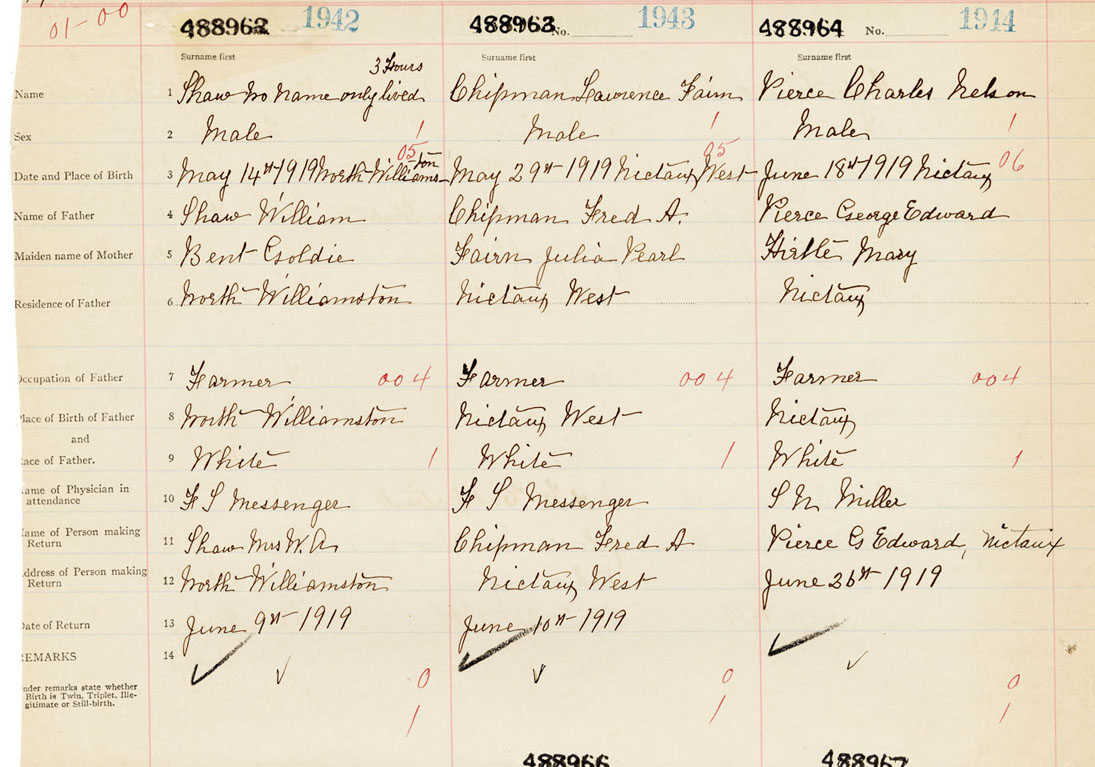 01-00
488962 1942 488963 No. 1943 488964 No. 1944
Surname first Surname first Surname first
3 Hours
Name 1 Shaw no name only lived Chipman Lawrence Fairn Pierce Charles Nelson
Sex 2 Male 1 Male 1 Male 1
05 ton 05 06
Date and Place of Birth 3 May 14th 1919 North Williams- May 29th 1919 Nictaux West June 18th 1919 Nictaux
Name of Father 4 Shaw William Chipman Fred A. Pierce George Edward
Maiden name of Mother 5 Bent Goldie Fairn Julia Pearl Hirtle Mary
Residence of Father 6 North Williamston Nictaux West Nictaux
Occupation of Father 7 Farmer 004 Farmer 004 Farmer 004
Place of Birth of Father 8 North Williamston Nictaux West Nictaux
and
Race of Father. 9 White 1 White 1 White 1
Name of Physician in 10 F S Messenger F S Messenger S N Miller
attendance
Name of Person making 11 Shaw Mrs W. A. Chipman Fred A Pierce G Edward, Nictaux
Return
Address of Person making 12 North Williamston Nictaux West June 26th 1919
Return
Date of Return 13 June 9th 1919 June 10th 1919
REMARKS 14
Under remarks state whether 0 0 0
Birth is Twin, Triplet, Ille-
gitimate or Still-birth. 1 1 1
488966 488967